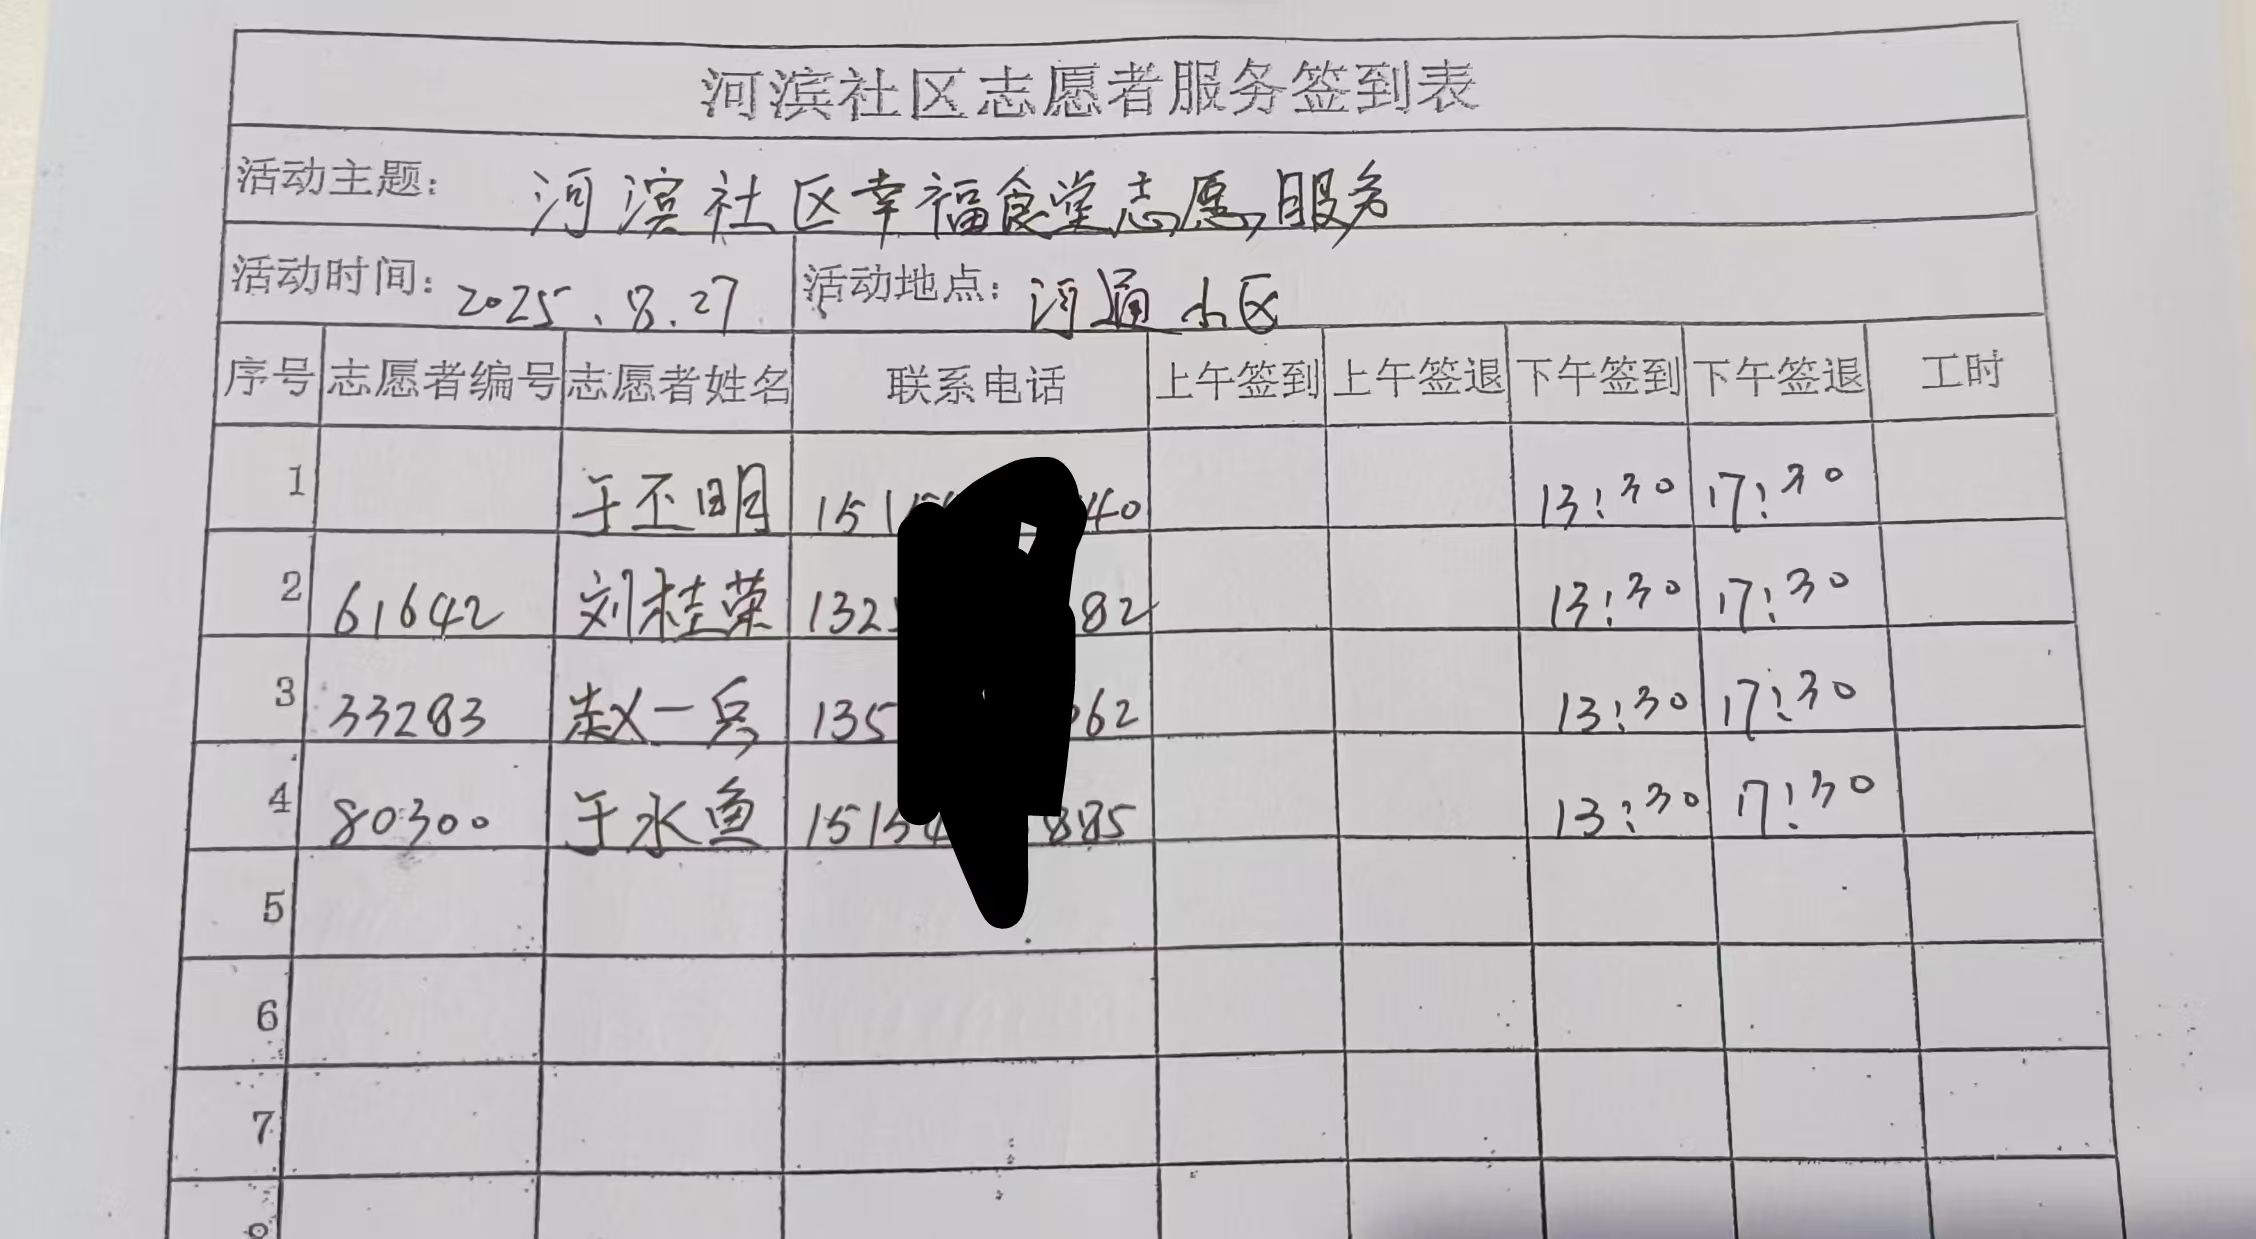 河滨社区志愿者服务签到表
活动主题： 河滨社区幸福食堂志愿服务
活动时间： 2025.8.27 活动地点： 河通小区
序号 志愿者编号 志愿者姓名 联系电话 上午签到 上午签退 下午签到 下午签退 工时
1 于丕明 151 40 13:30 17:30
2 61642 刘桂荣 132 82 13:30 17:30
3 33283 赵一兵 135 62 13:30 17:30
4 80300 于水鱼 1515 885 13:30 17:30
5
6
7